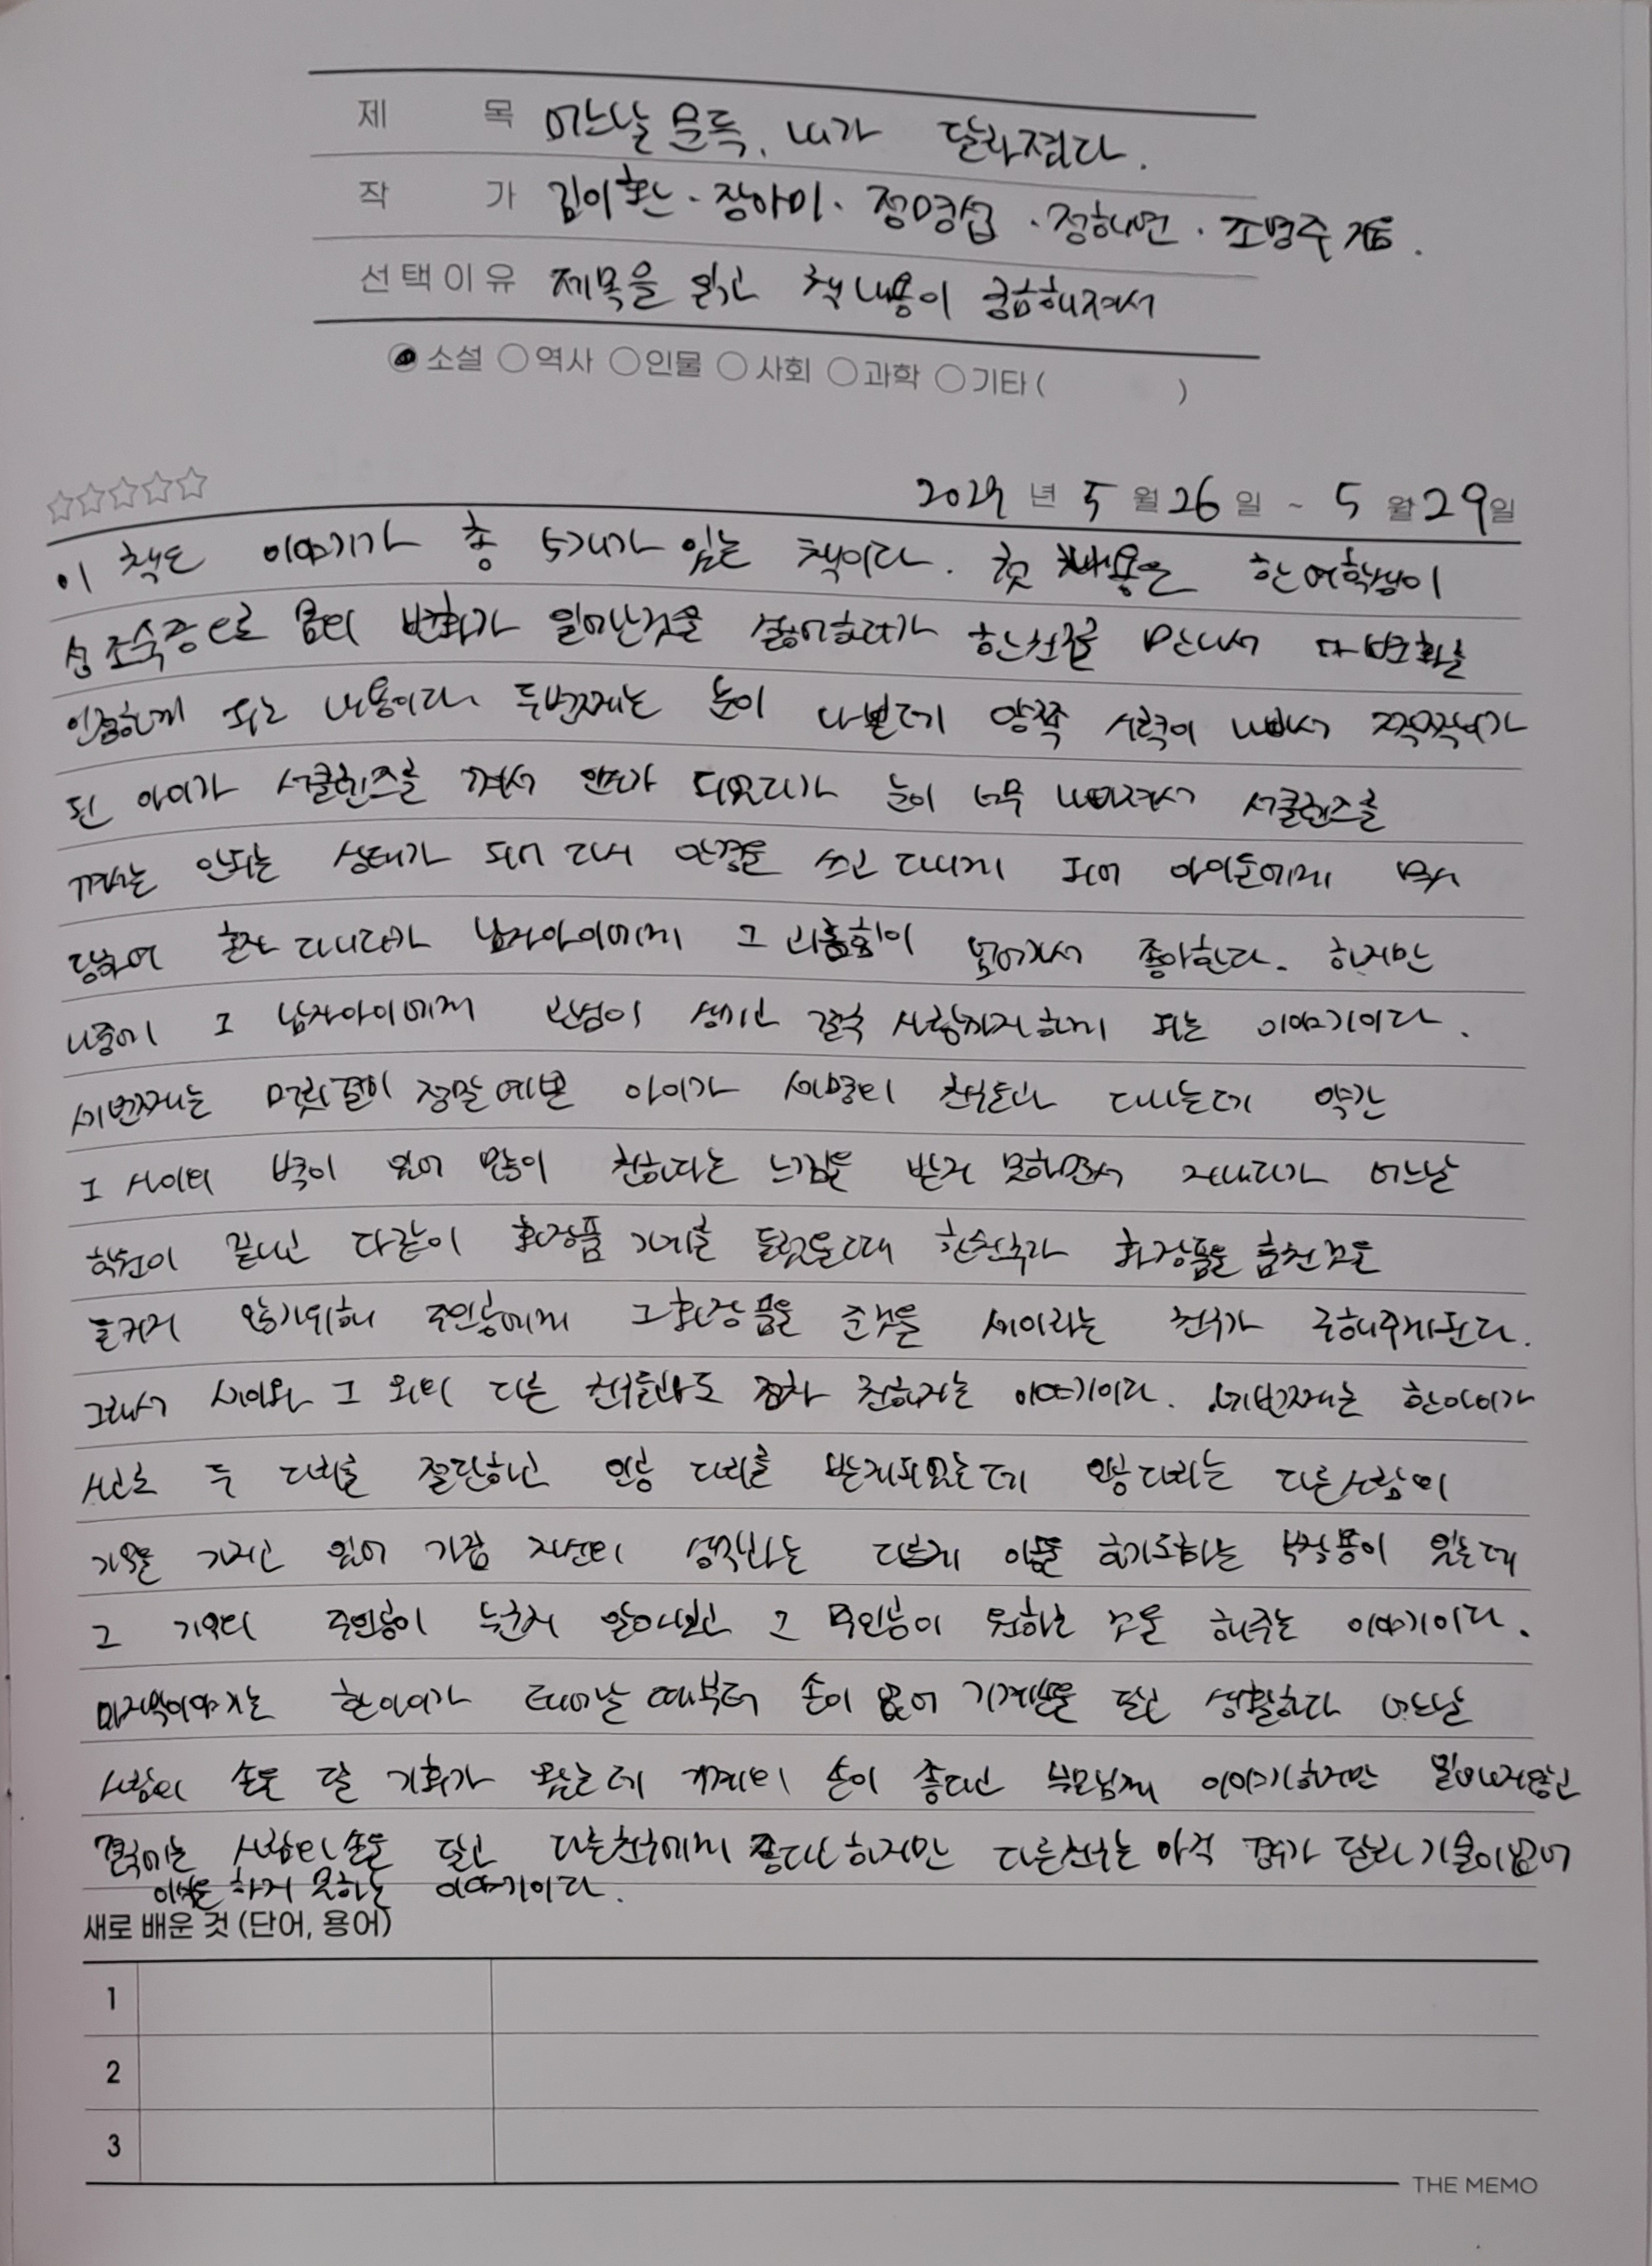 제 목 어느날 문득, 내가 달라졌다.
작 가 김이환 · 장아미 · 정명섭 · 정해연 · 조영주 지음.
선택이유 제목을 읽고 책 내용이 궁금해져서
소설 역사 인물 사회 과학 기타 ( )
년 5월 26일 ~ 5월 29일
이 책은 이야기가 총 5개가 있는 책이다. 첫 내용은 한 여학생이
성조숙증으로 몸의 변화가 일어난것을 싫어하다가 한친구를 만나서 변화를
인정하게 되는 내용이다. 두번째는 눈이 나쁜데 양쪽 시력이 나빠서 짝짝이가
된 아이가 서클렌즈를 껴서 인싸가 되었다가 눈이 너무 나빠져서 서클렌즈를
껴서는 안되는 상태가 되어 다시 안경을 쓰고 다니게 되어 아이들에게 무시
당하여 혼자 다니다가 남자아이에게 그 괴롭힘이 좋아한다. 하지만
나중에 그 남자아이에게 관심이 생기고 결국 사랑까지하게 되는 이야기이다.
세번째는 머릿결이 정말 예쁜 아이가 세명의 친구들과 다니는데 약간
그 사이의 벽이 있어 많이 친하다는 느낌을 받지 못하면서 지내다가 어느날
학원이 끝나고 다같이 화장품 가게를 들렀을때 한친구가 화장품을 훔친것을
들키지 않기위해 주인공에게 그화장품을 준것을 세이라는 친구가 구해주게된다.
그래서 세이와 그 외의 다른 친구들과도 점차 친해지는 이야기이다. 네번째는 한아이가
사고로 두 다리를 절단하고 인공 다리를 받게되었는데 인공다리는 다른사람의
기억을 가지고 있어 가끔 자신의 생각과는 다르게 하기도하는 부작용이 있는데
그 기억의 주인공이 누군지 알아내고 그 주인공이 원하는 것을 해주는 이야기이다.
마지막이야기는 한아이가 태어날 때부터 손이 없어 기계손을 달고 생활하다 어느날
사람의 손을 달 기회가 왔는데 기계의 손이 좋다고 부모님께 이야기하지만 받아지않고
결국에는 사람의 손을 달고 다른친구에게 하지만 다른친구는 아직 경우가 달라 기술이없어
이식을 하지 못하는 이야기이다.
새로 배운 것 (단어, 용어)
1
2
3
THE MEMO